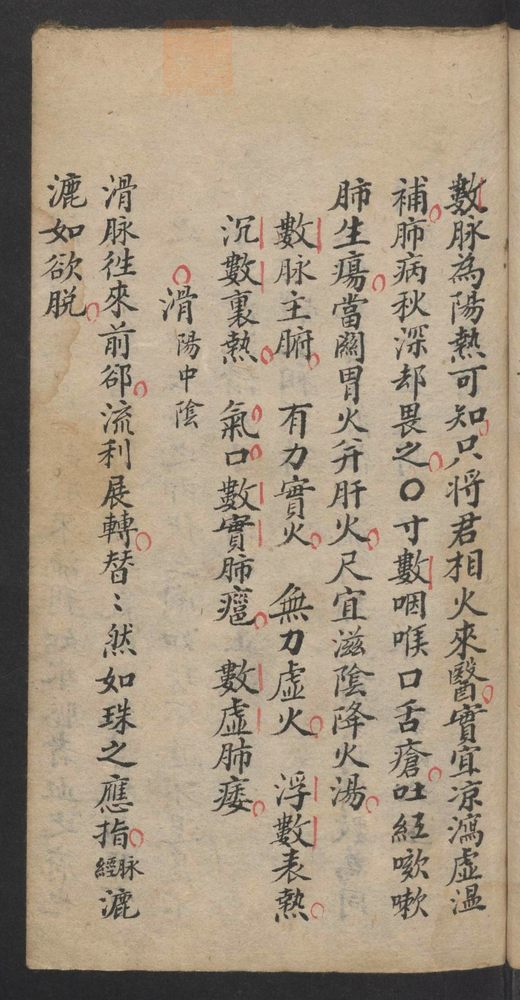 數脉為陽熱可知只将君相火來醫實宜凉瀉虛温
補肺病秋深却畏之〇寸數咽喉口舌瘡吐紅咳嗽
肺生瘍當關胃火并肝火尺宜滋陰降火湯
數脉主腑 有力實火 無力虛火 浮數表熱
沉數裏熱 氣口數實肺癰 數虛肺痿
滑 陽中陰
滑脉徃來前郤流利展轉替〻然如珠之應指脉經漉
漉如欲脱